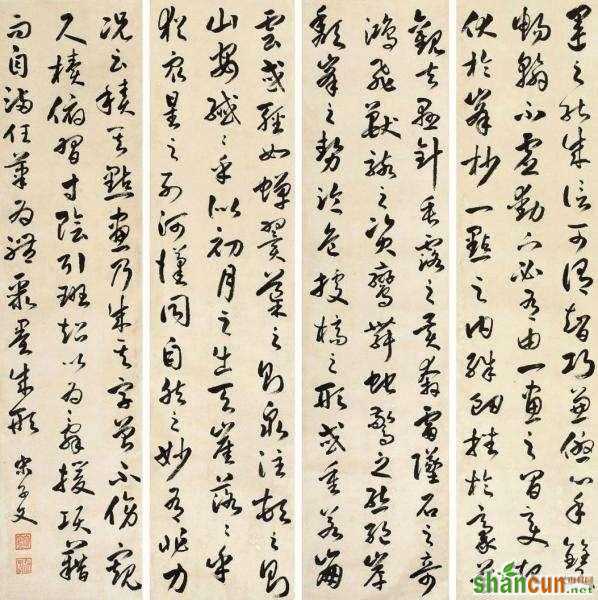 運之能成信可謂智巧兼優心手雙
暢翰不虛動下必有由一畫之間變起
伏於峯杪一點之內殊衄挫於豪芒
觀夫懸針垂露之異奔雷墜石之奇
鴻飛獸駭之資鸞舞蛇驚之態絕岸
頹峯之勢臨危據槁之形或重若崩
雲或輕如蟬翼導之則泉注頓之則
山安纖〻乎似初月之出天崖落〻乎
猶眾星之列河漢同自然之妙有非力
況云積其點畫乃成其字曾不傍窺
尺牘俯習寸陰引班超以為辭援項籍
而自滿任筆為體聚墨成形 宋子文
shancun